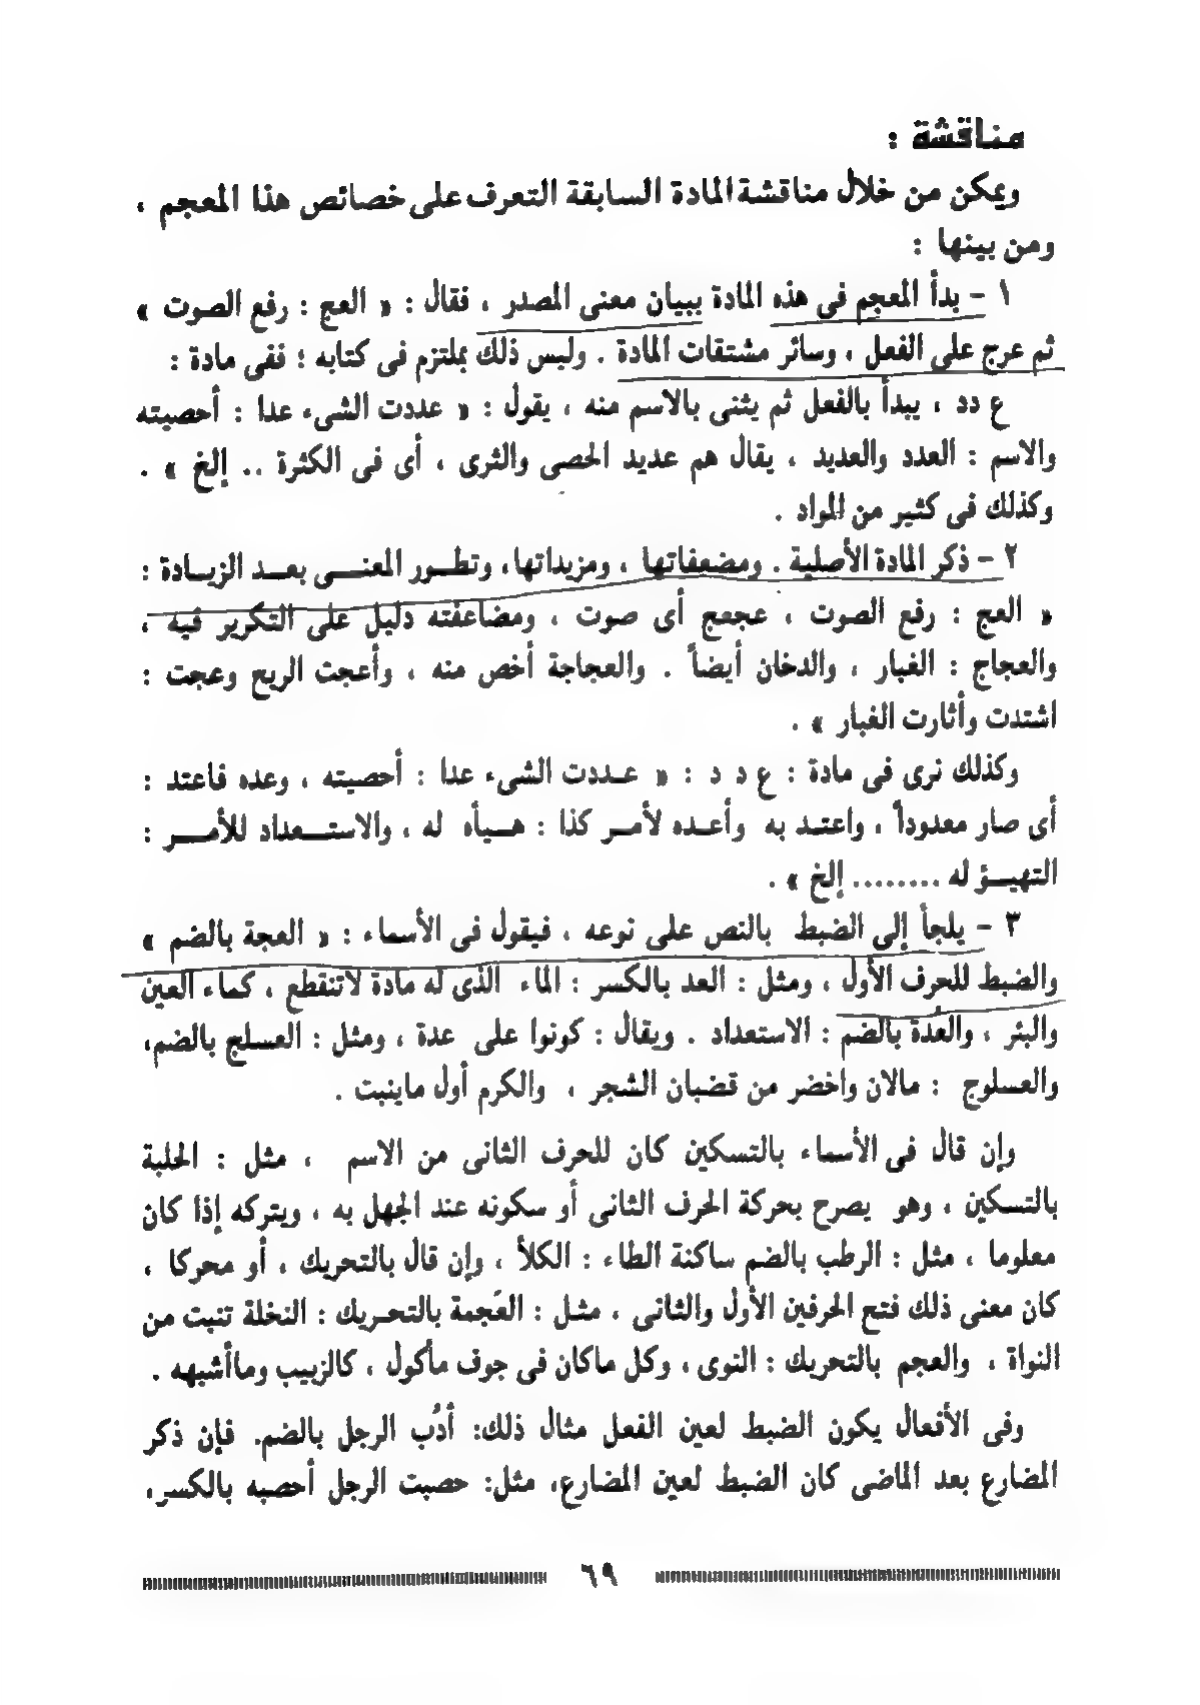 مناقشة :
ويمكن من خلال مناقشة المادة السابقة التعرف على خصائص هذا المعجم ،
ومن بينها :
١ - بدأ المعجم فى هذه المادة ببيان معنى المصدر ، فقال : « العج : رفع الصوت »
ثم عرج على الفعل ، وسائر مشتقات المادة . وليس ذلك بملتزم فى كتابه ؛ ففى مادة :
ع دد ، يبدأ بالفعل ثم يثنى بالاسم منه ، يقول : « عددت الشىء عدا : أحصيته
والاسم : العدد والعديد ، يقال هم عديد الحصى والثرى ، أى فى الكثرة .. إلخ » .
وكذلك فى كثير من المواد .
٢ - ذكر المادة الأصلية . ومضعفاتها ، ومزيداتها، وتطـور المعنـــى بعـــد الزيـــادة :
« العج : رفع الصوت ، عجعج أى صوت ، ومضاعفته دليل على التكرير فيه ،
والعجاج : الغبار ، والدخان أيضاً . والعجاجة أخص منه ، وأعجت الريح وعجت :
اشتدت وأثارت الغبار » .
وكذلك نرى فى مادة : ع د د : « عـددت الشىء عدا : أحصيته ، وعده فاعتد :
أى صار معدوداً ، واعتـد به وأعـده لأمـر كذا : هـيأه له ، والاستـعداد للأمـــر :
التهيــؤ له ........ إلخ » .
٣ - يلجأ إلى الضبط بالنص على نوعه ، فيقول فى الأسماء : « العجة بالضم »
والضبط للحرف الأول ، ومثل : العد بالكسر : الماء الذى له مادة لاتنقطع ، كماء العين
والبئر ، والعُدة بالضم : الاستعداد . ويقال : كونوا على عدة ، ومثل : العسلج بالضم،
والعسلوج : مالان واخضر من قضبان الشجر ، والكرم أول ماينبت .
وإن قال فى الأسماء بالتسكين كان للحرف الثانى من الاسم ، مثل : الحلبة
بالتسكين ، وهو يصرح بحركة الحرف الثانى أو سكونه عند الجهل به ، ويتركه إذا كان
معلوما ، مثل : الرطب بالضم ساكنة الطاء : الكلأ ، وإن قال بالتحريك ، أو محركا ،
كان معنى ذلك فتح الحرفين الأول والثانى ، مثـل : العَجمة بالتحـريك : النخلة تنبت من
النواة ، والعجم بالتحريك : النوى ، وكل ماكان فى جوف مأكول ، كالزبيب وماأشبهه .
وفى الأفعال يكون الضبط لعين الفعل مثال ذلك: أدُب الرجل بالضم. فإن ذكر
المضارع بعد الماضى كان الضبط لعين المضارع، مثل: حصبت الرجل أحصبه بالكسر،
٦٩